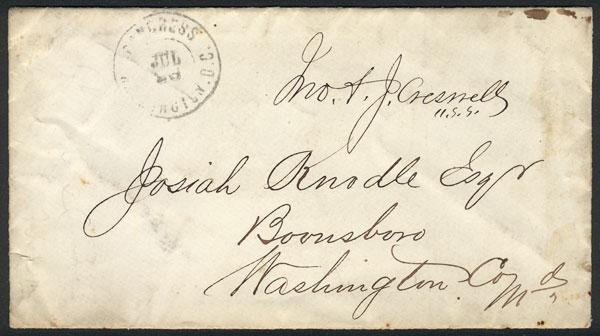 CONGRESS
WASHINGTON. D.C.
JUL
Jno. A. J. Creswell
U.S.S.
Josiah Knodle Esqr
Boonsboro
Washington Co
Md